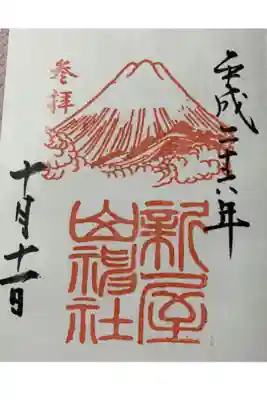 平成二十六年
参拝
新屋
山神社
十月十一日